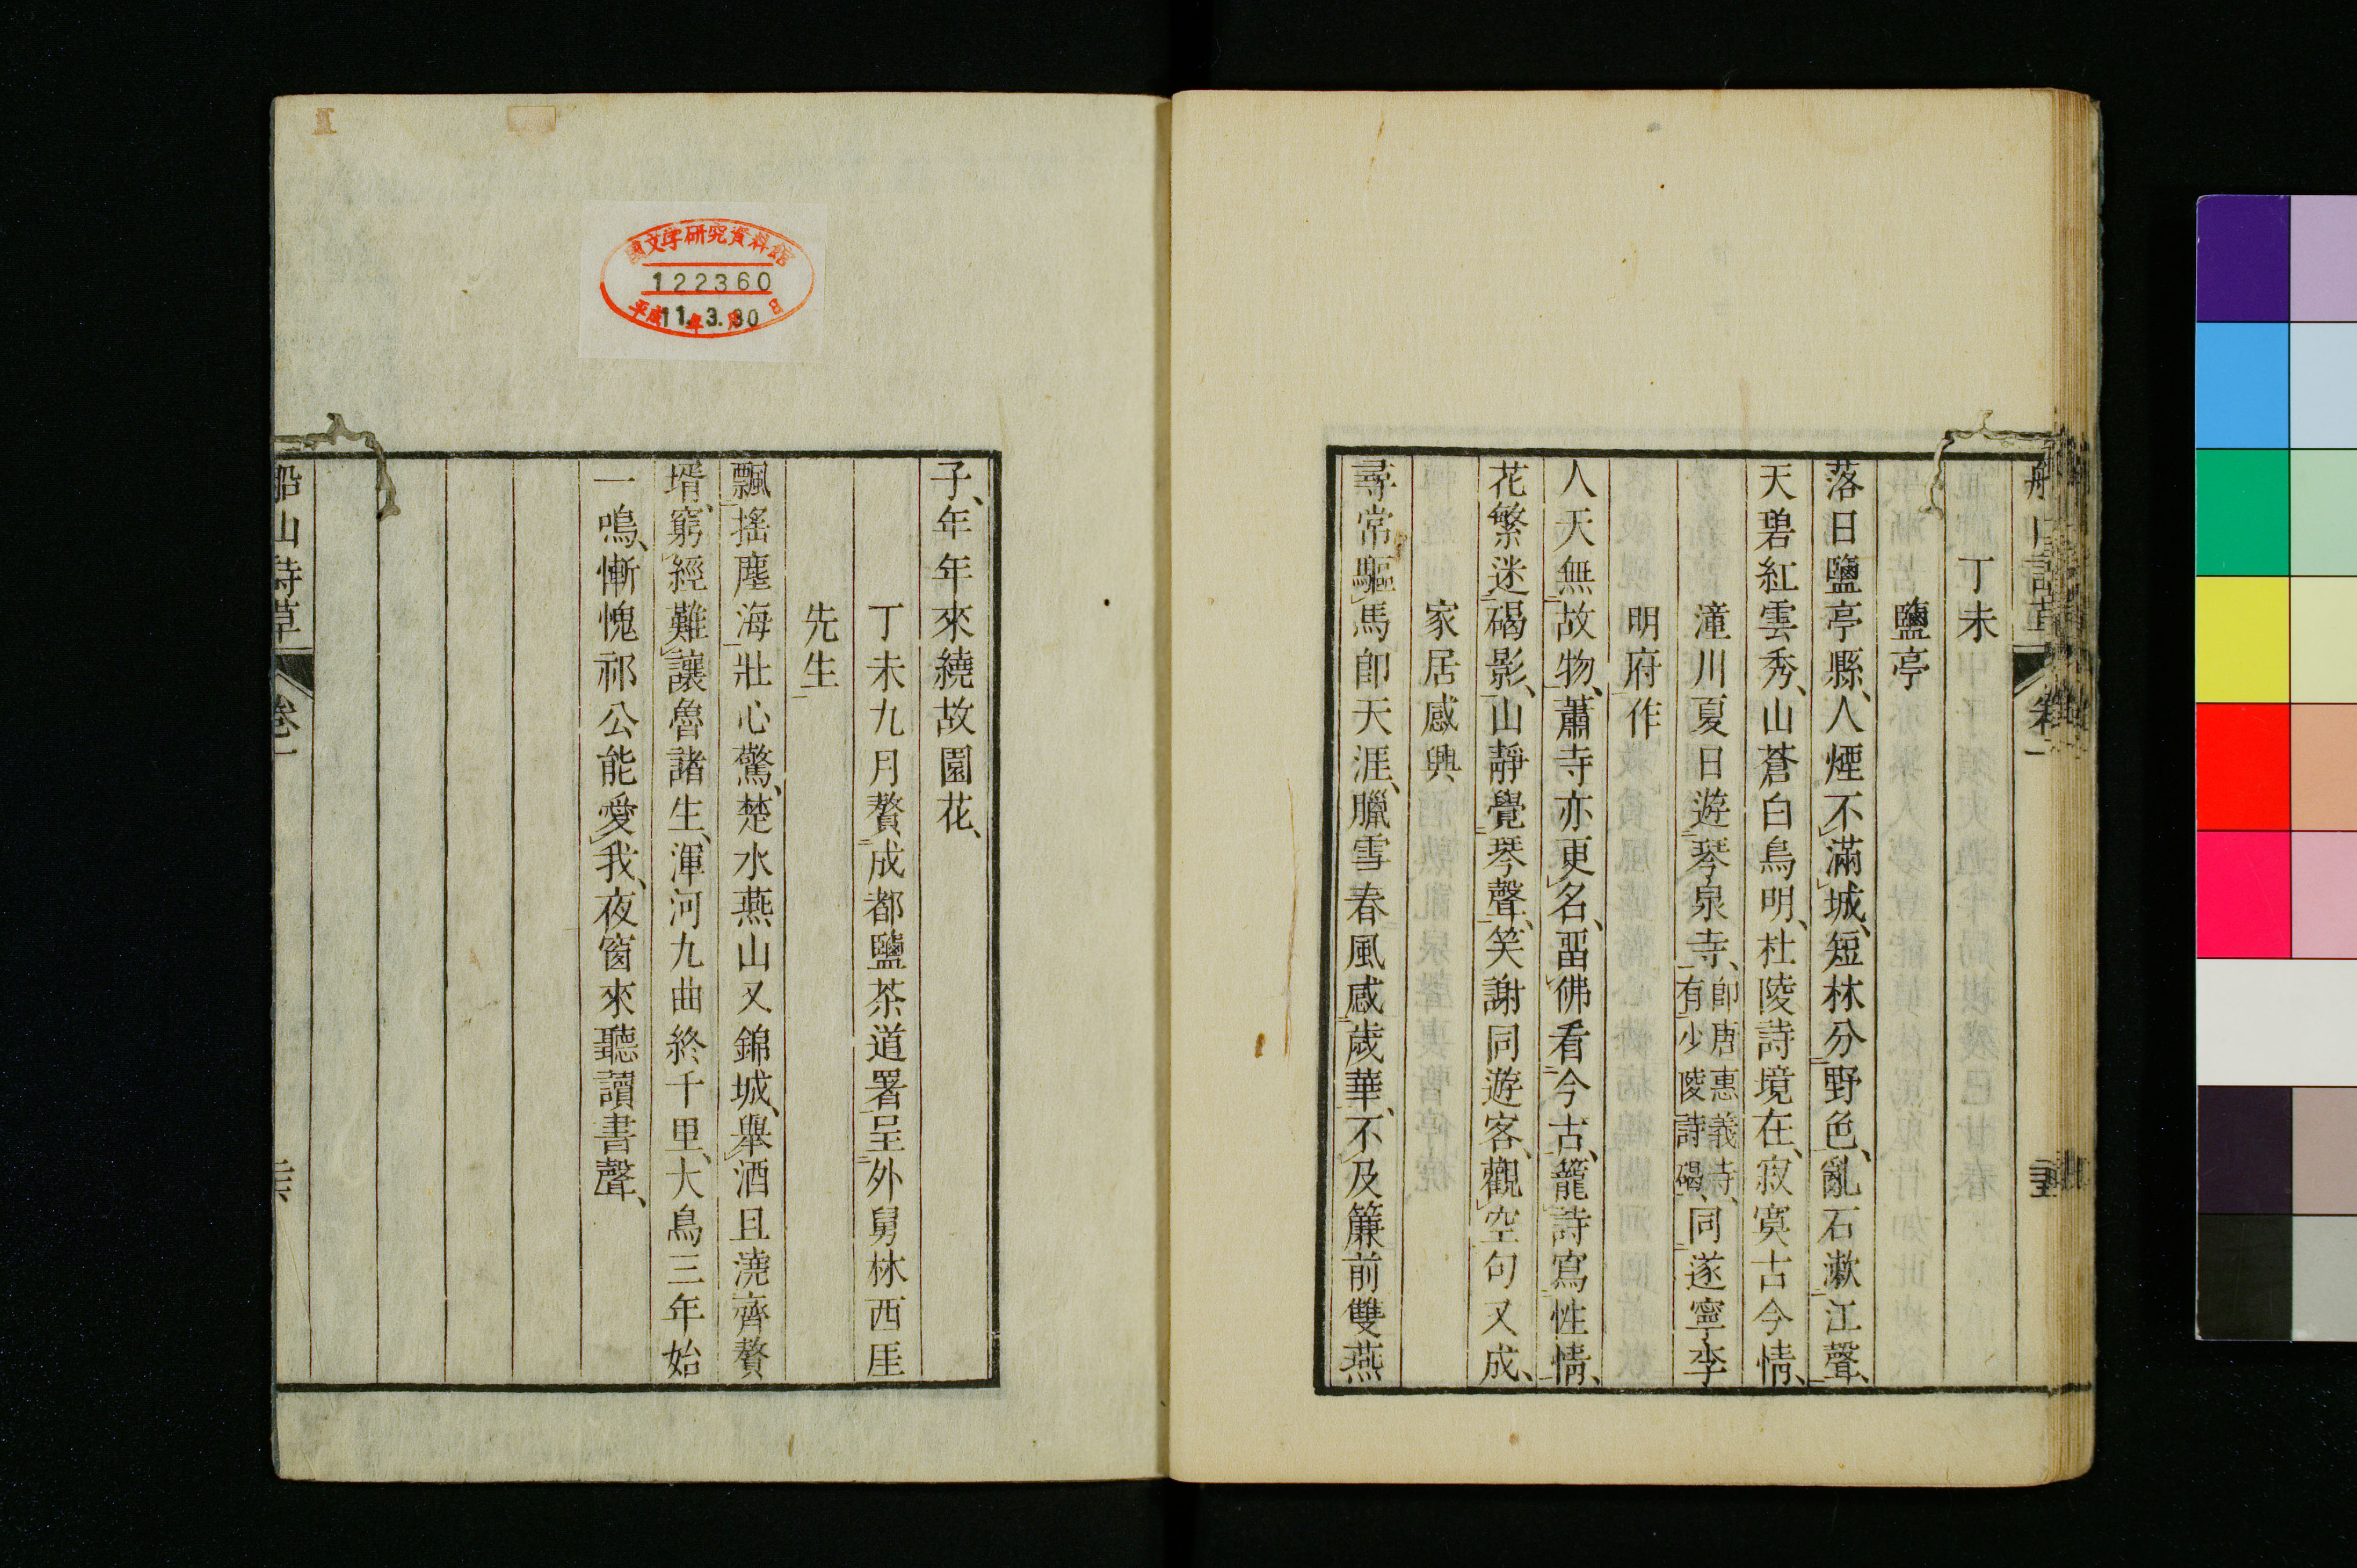 丁未
鹽亭
落日鹽亭縣、人煙不滿城、短林分野色、亂石漱江聲、
天碧紅雲秀、山蒼白鳥明、杜陵詩境在、寂寞古今情、
潼川夏日遊琴泉寺、即唐惠義寺、有少陵詩碣、同遂寧李
明府作
人天無故物、蕭寺亦更名、畱佛看今古、籠詩寫性情、
花繁迷碣影、山靜覺琴聲、笑謝同遊客、觀空句又成、
家居感興
尋常驅馬即天涯、臘雪春風感歲華、不及簾前雙燕
子、年年來繞故園花、
丁未九月贅成都鹽茶道署呈外舅林西厓
先生
飄搖塵海壯心驚、楚水燕山又錦城、舉酒且澆齊贅
壻、窮經難讓魯諸生、渾河九曲終千里、大鳥三年始
一鳴、慚愧祁公能愛我、夜窗來聽讀書聲、
船山詩草
卷一
國文学研究資料館
122360
平成11年3月30日